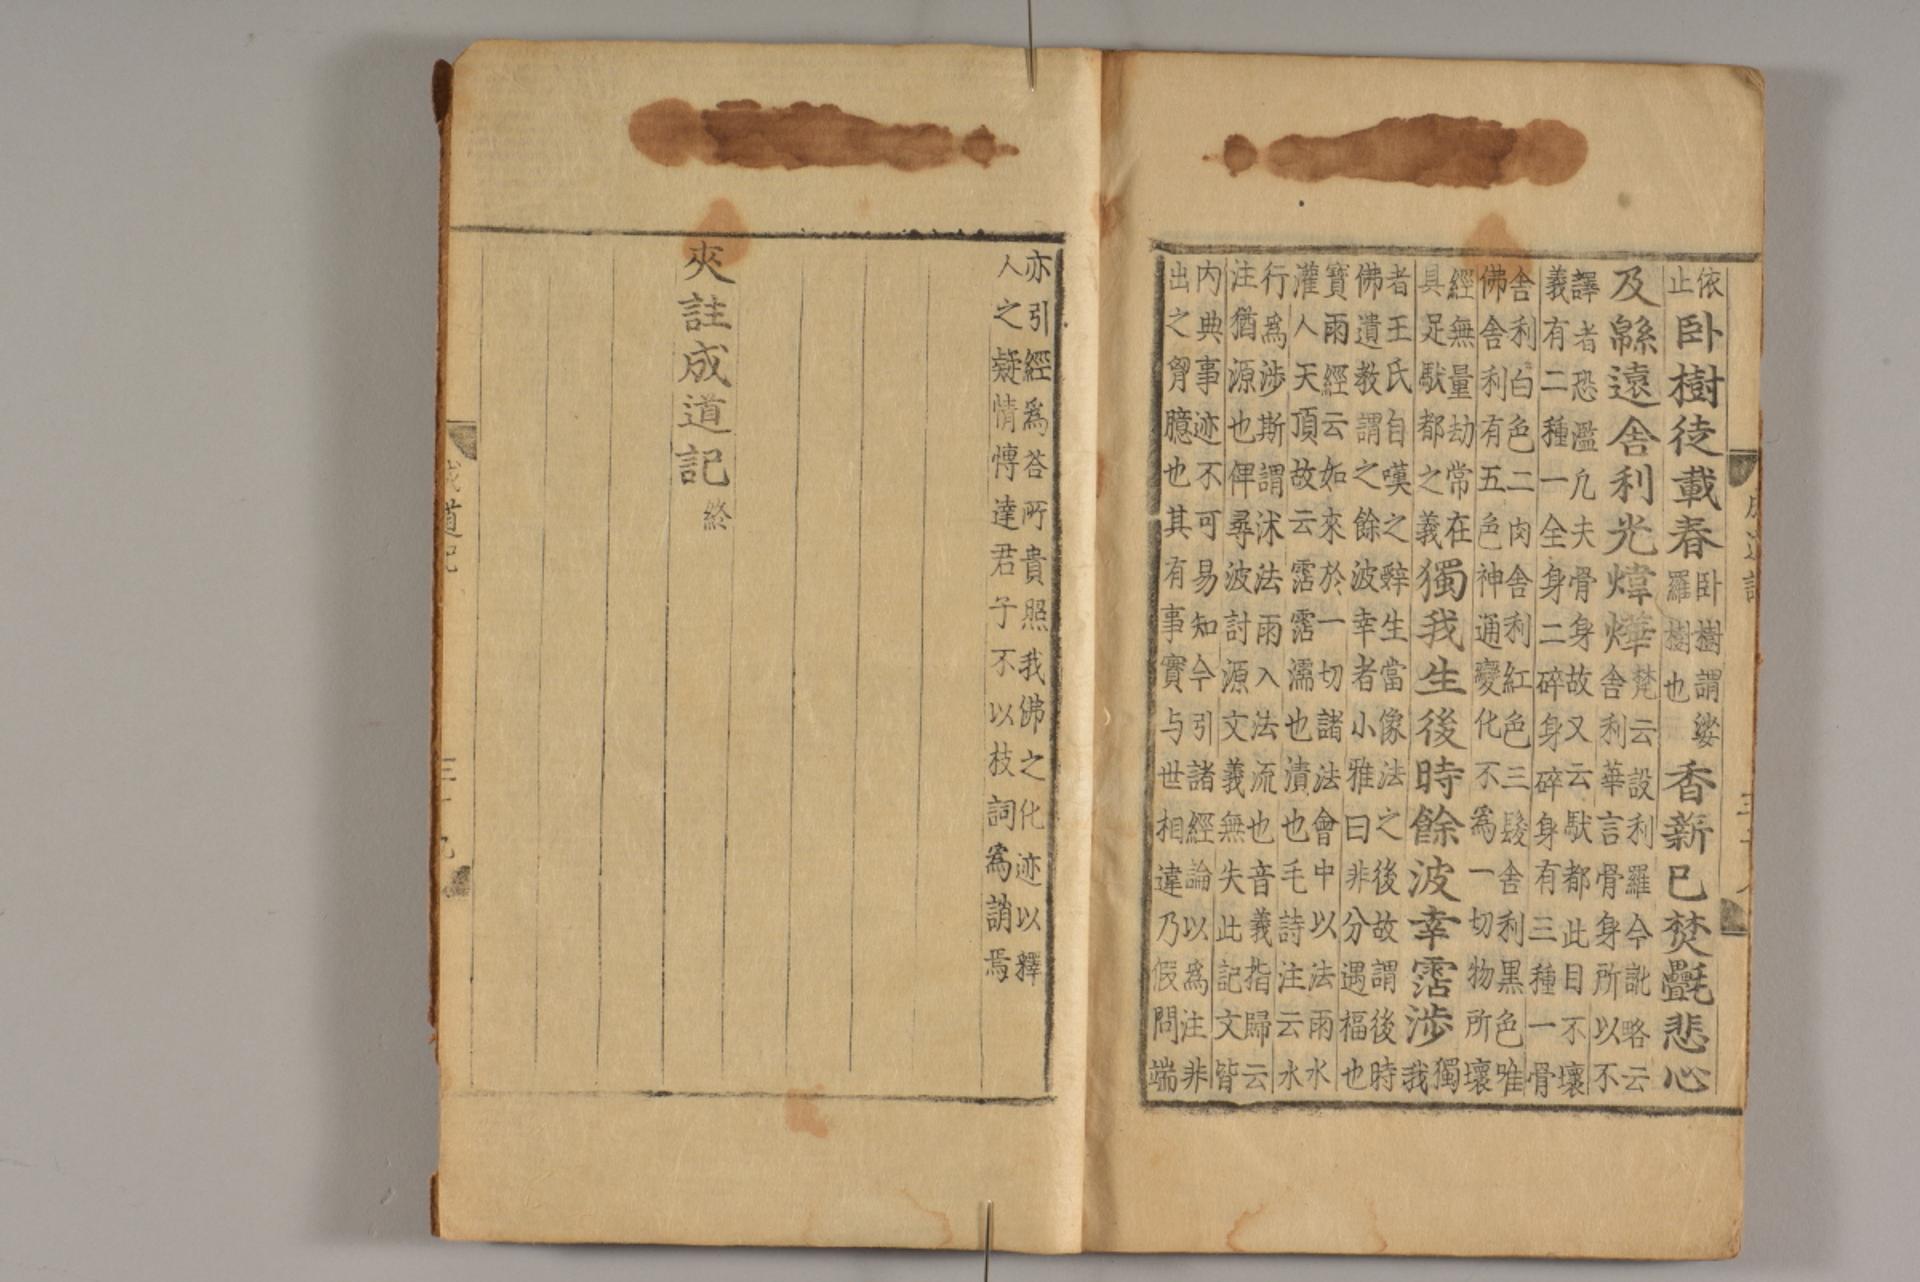 依
止
卧樹徒載春
卧樹謂娑
羅樹也
香薪已焚㲲悲心
及緜遠舍利光煒燁
梵云設利羅今訛略云
舍利華言骨身所以不
譯者恐濫凢夫骨身故又云䭾都此目不壞
義有二種一全身二碎身碎身有三種一骨
舍利白色二肉舍利紅色三髮舍利黑色唯
佛舍利有五色神通變化不爲一切物所壞
經無量劫常在
具足䭾都之義
獨我生後時餘波幸霑涉
獨
我
者王氏自嘆之辝生當像法之後故謂後時
佛遺教謂之餘波幸者小雅曰非分遇福也
寳雨經云如來於一切諸法會中以法雨水
灌人天頂故云霑霑濡也漬也毛詩注云水
行爲涉斯謂沭法雨入法流也音義指歸云
注猶源也俾尋波討源文義無失此記文皆
内典事迹不可易知今引諸經論以爲注非
出之胷臆也其有事實与世相違乃假問端
亦引經爲荅所貴照我佛之化迹以釋
人之疑情愽達君子不以枝詞爲誚焉
夾註成道記
終
成道記